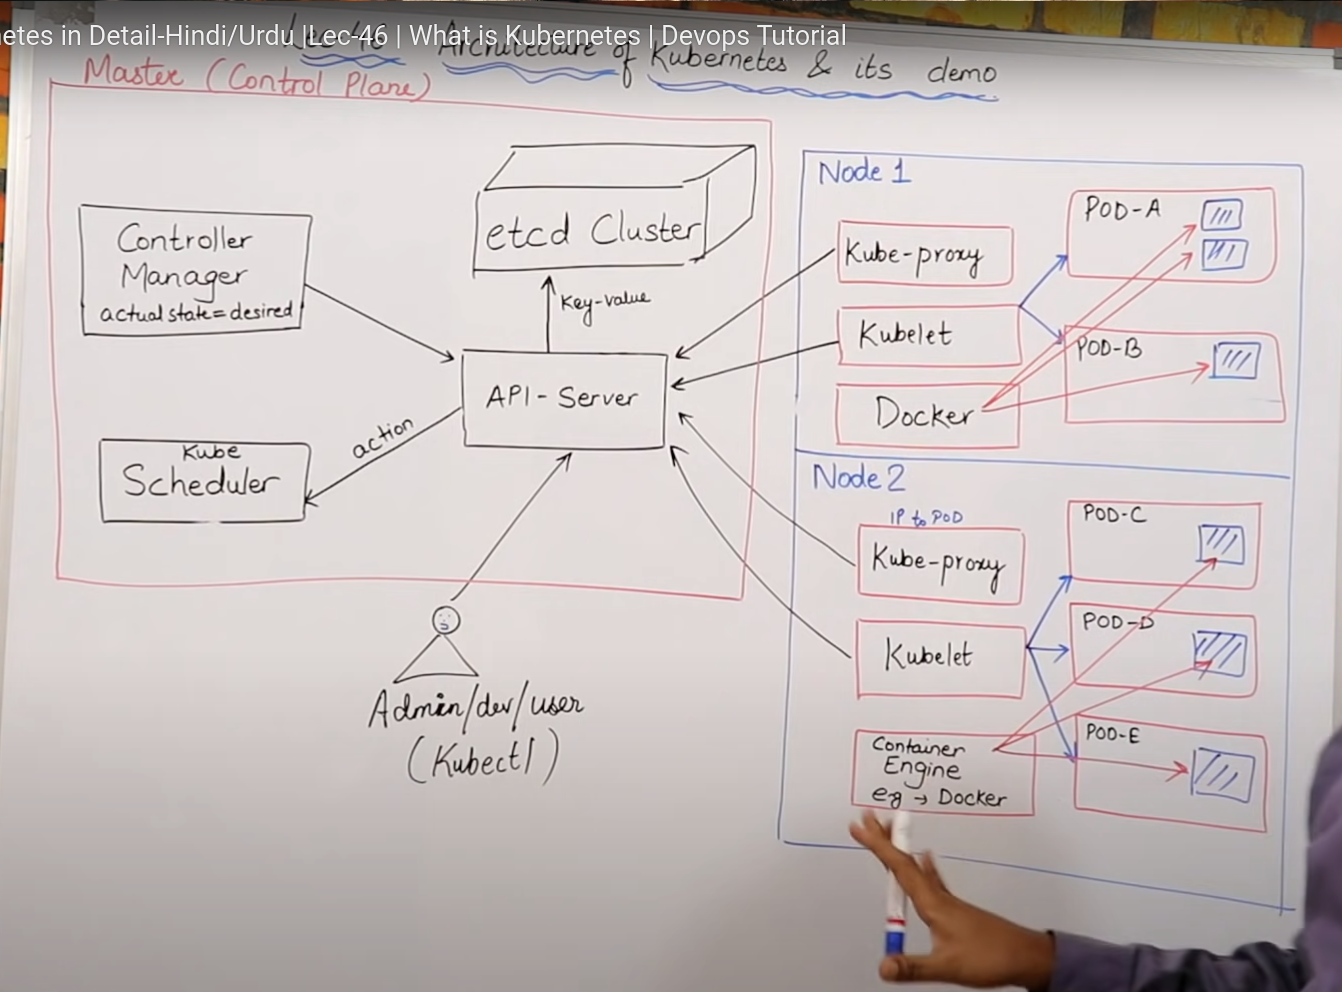 etes in Detail-Hindi/Urdu |Lec-46 | What is Kubernetes | Devops Tutorial
Lec-46 Architecture of Kubernetes & its demo
Master (Control Plane)
Controller
Manager
actual state = desired
etcd Cluster
Key-value
API - Server
action
Kube
Scheduler
Admin/dev/user
(Kubectl)
Node 1
Kube-proxy
Kubelet
Docker
POD-A
POD-B
Node 2
IP to POD
Kube-proxy
Kubelet
Container
Engine
eg → Docker
POD-C
POD-D
POD-E